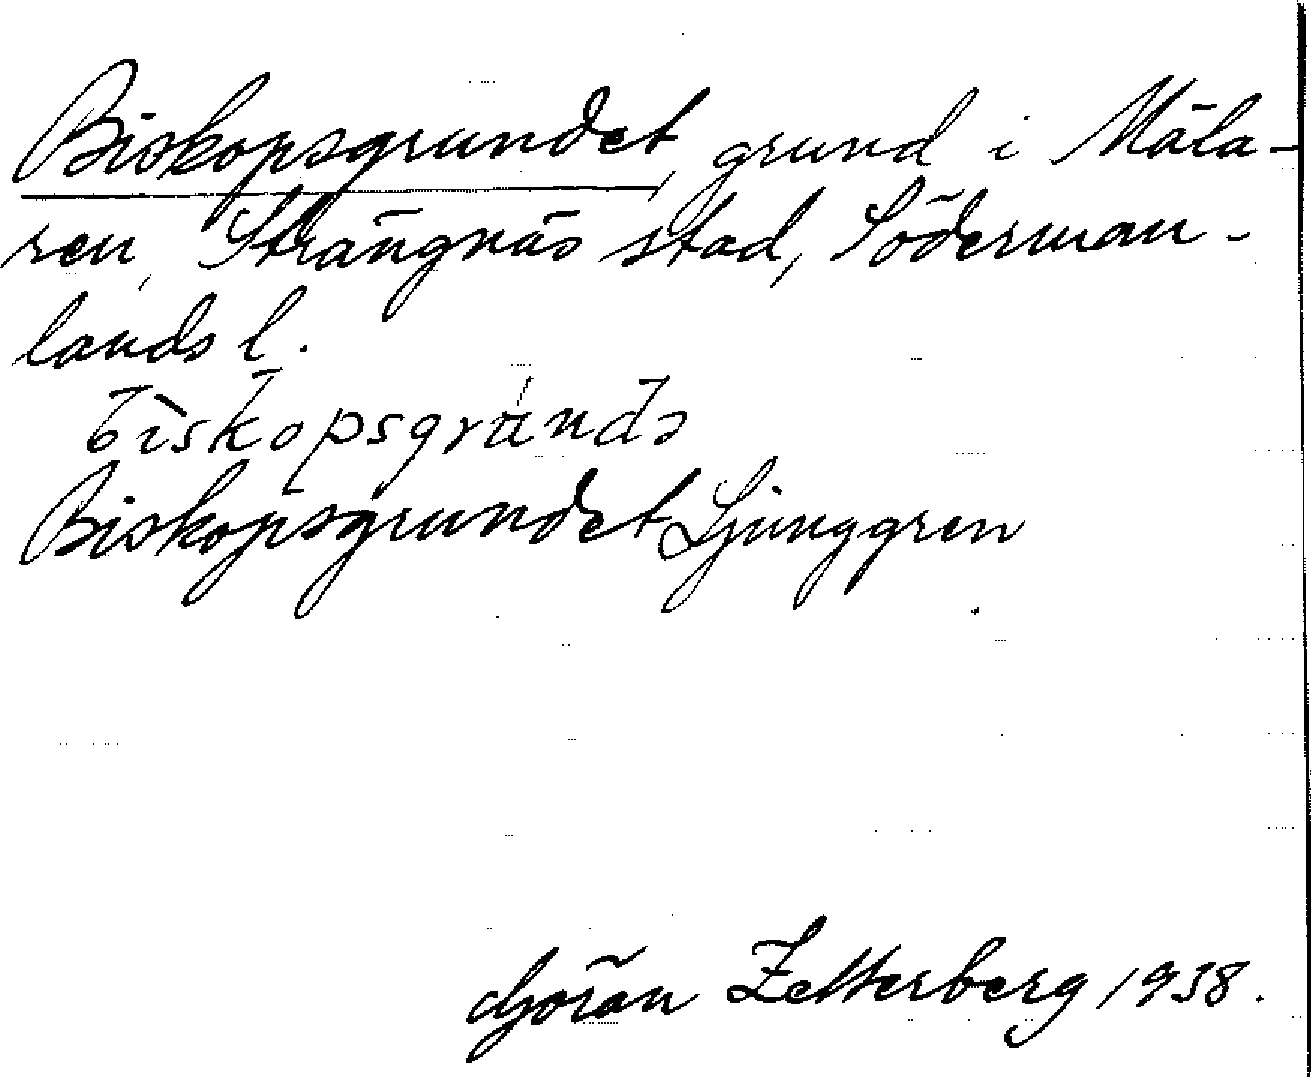 Biskopsgrundet, grund i Mäla-
ren, Strängnäs stad, Söderman-
lands l.
Biskopsgrundet Ljunggren
Göran Zetterberg 1938.